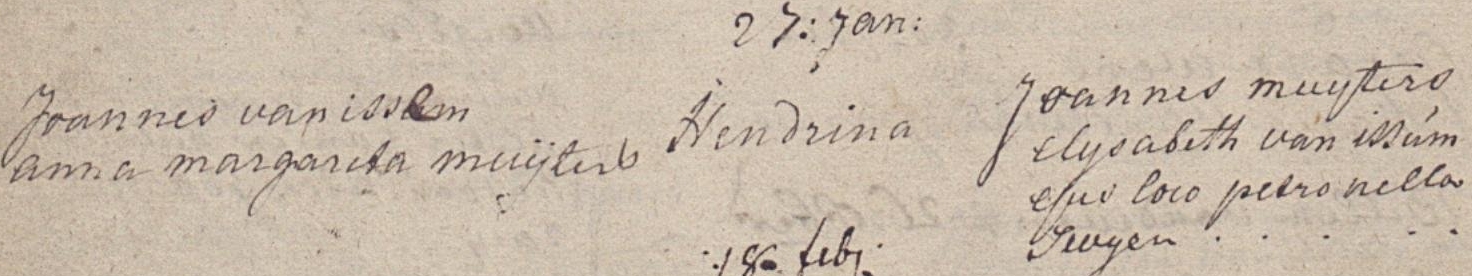 27: Jan:
Joannes van issem
anna margareta muijters
Hendrina
Joannes muyters
elysabeth van issúm
ejus loco petronella
. . . . .
18 febj.